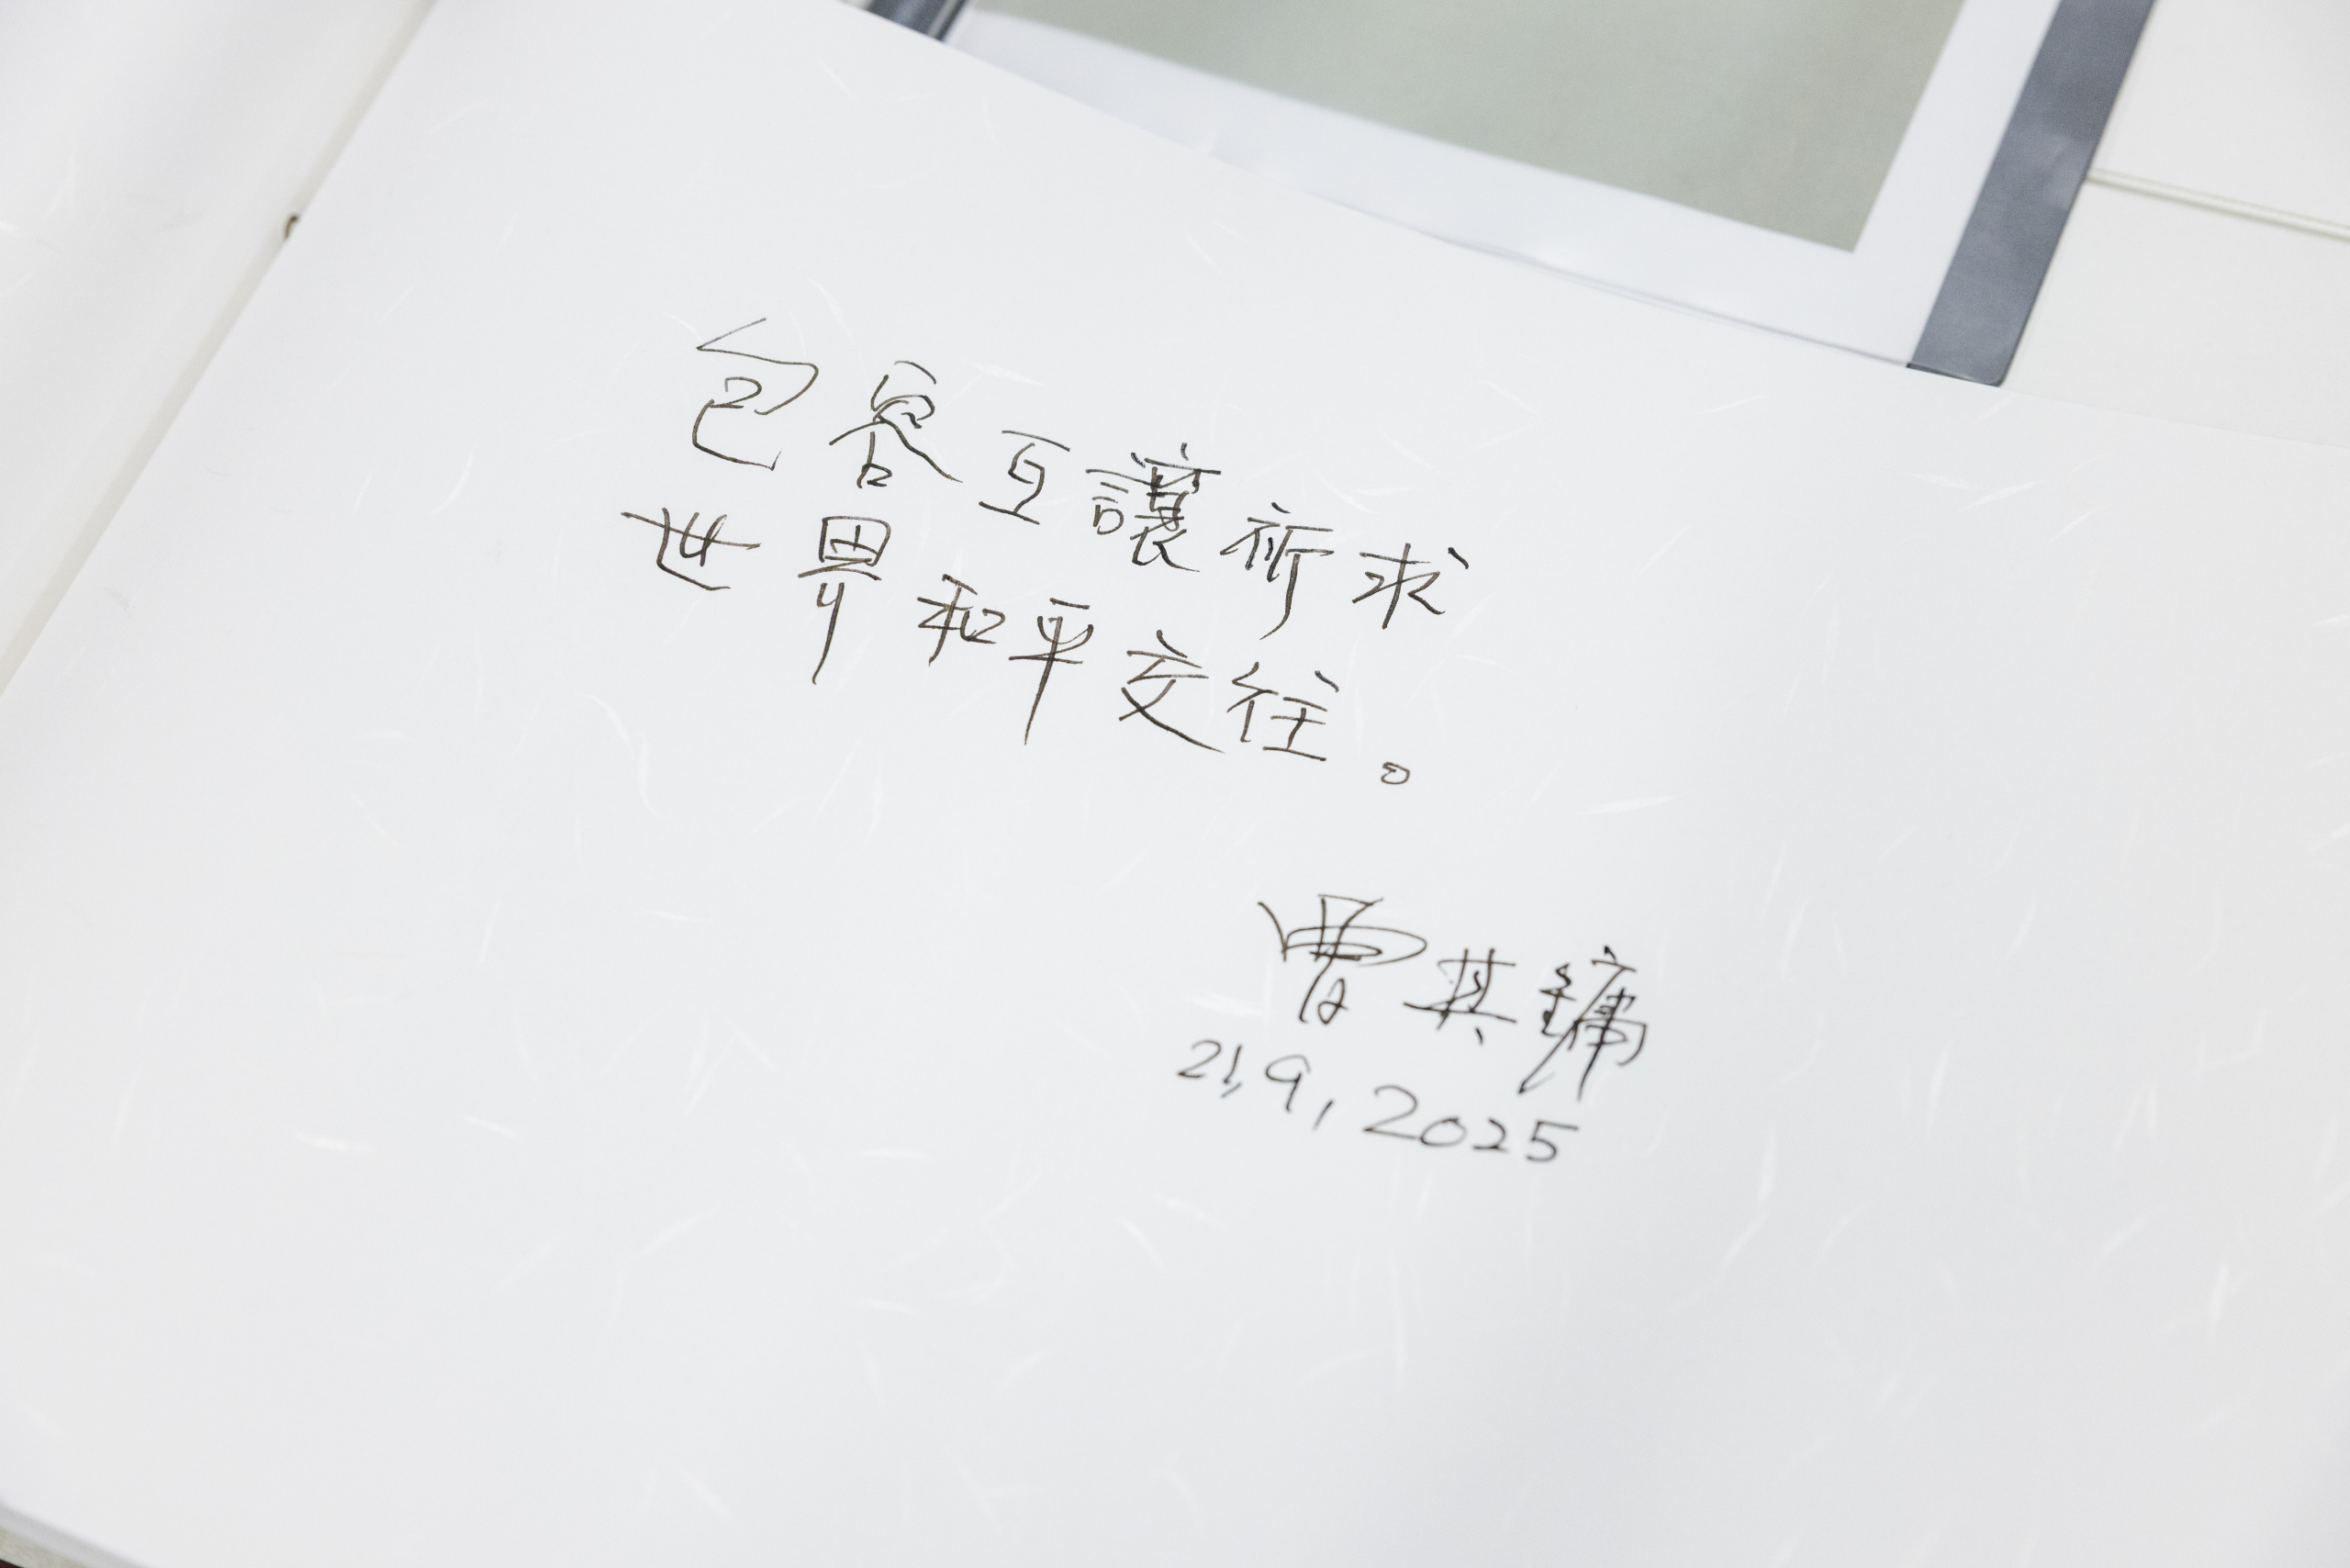 包容互讓祈求
世界和平交往。
曹其鏞
21,9,2025